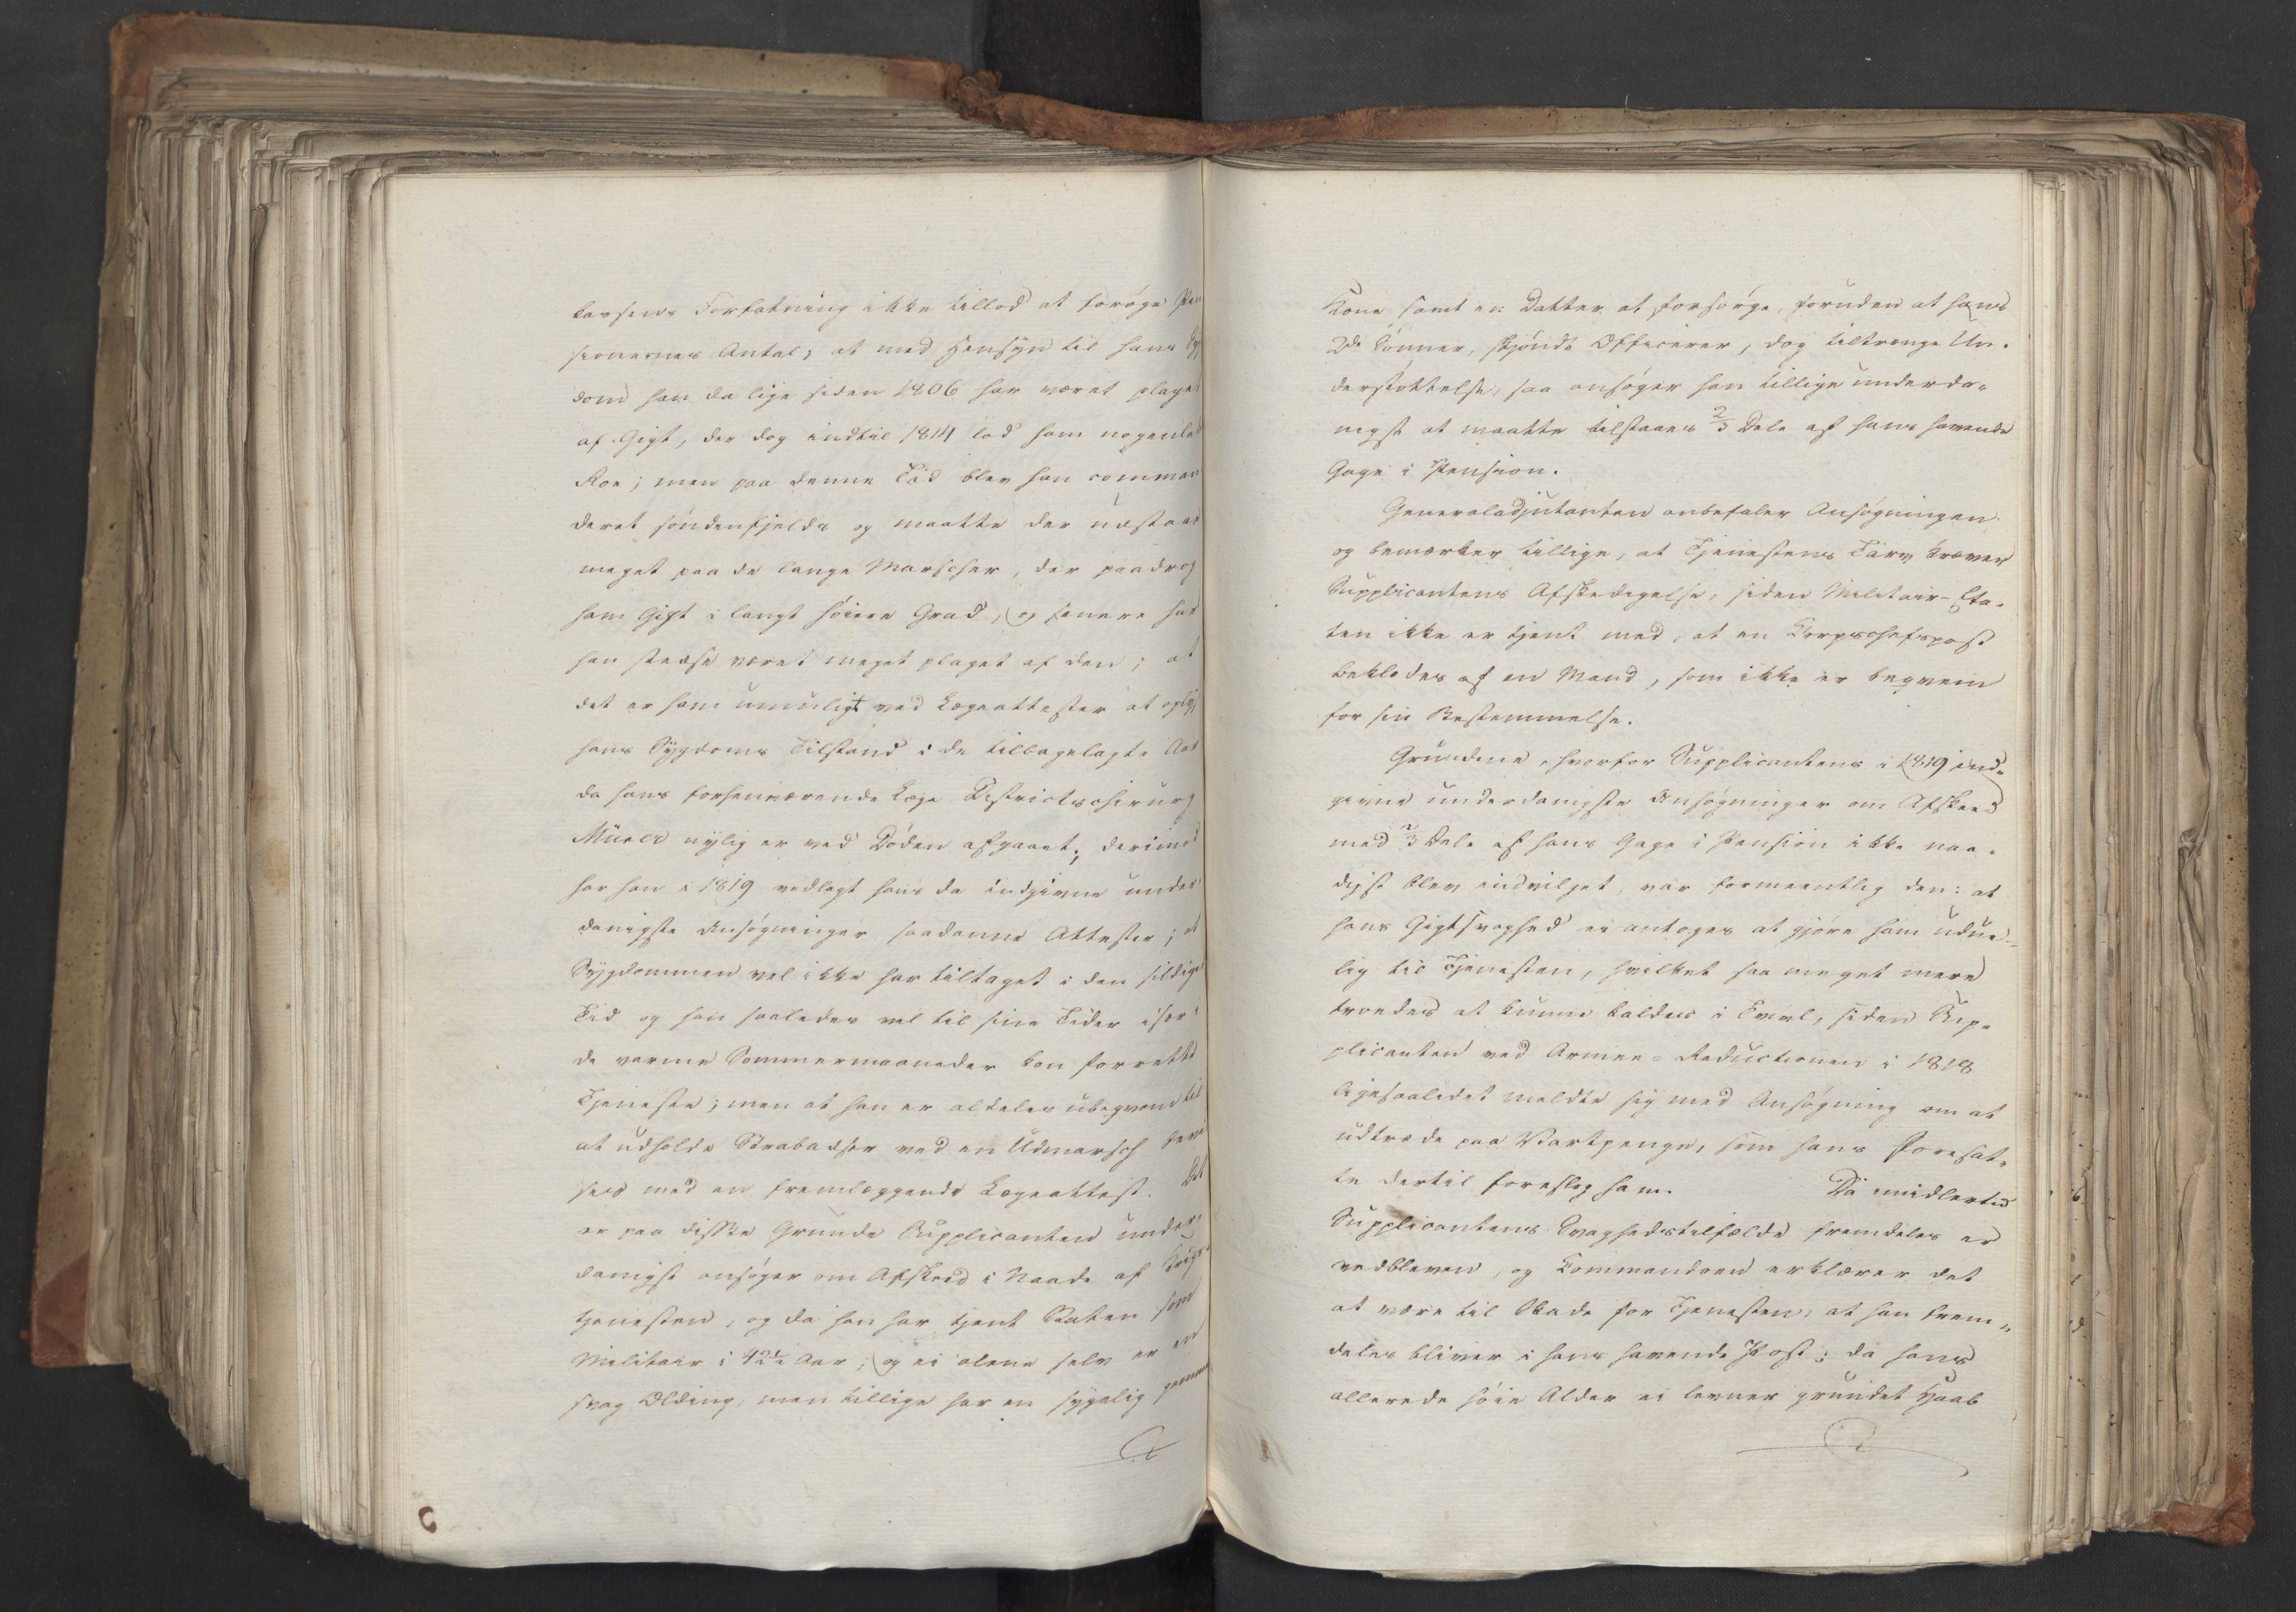 kassens Forfatning ikke tillod at forøge Pen
sionernes Antal; at med Hensyn til hans Syg
dom han da lige siden 1806 har været plaget
af Gigt, der dog indtil 1814 lod ham nogenledes
Roe; men paa denne Tid blev han comman
deret søndenfjelds og maatte der udstaae
meget paa de lange Marscher, der paadrog
ham Gigt i langt høiere Grad, og senere har
han stedse været meget plaget af den; at
det er ham umuligt ved Lægeattester at oplyse
hans Sygdoms Tilstand i de tilbagelagte Aar
da hans forhenværende Læge Districtschirurg
Müller nylig er ved Døden afgaaet; derimod
har han i 1819 vedlagt hans da indgivne under
danigste Ansøgninger saadanne Attester; at
Sygdommen vel ikke har tiltaget i den sildigere
Tid og han saaledes vel til sine Tider især i
de varme Sommermaaneder kan forrette
Tjeneste; men at han er aldeles ubeqvem til
at udholde Strabadser ved en Udmarsch bevi
ses med en fremlæggende Lægeattest. Det
er paa disse Grunde Supplicanten under
danigst ansøger om Afskeed i Naade af Krigs
tjenesten, og da han har tjent Staten som
Militair i 42½ Aar, og ei alene selv er en
svag Olding, men tillige har en sygelig gammel
Kone samt en Datter at forsørge, foruden at hans
2de Sønner, skjøndt Officierer, dog tiltrænge Un-
derstøttelse, saa ansøger han tillige underda-
nigst at maatte tilstaaes 2/3 Dele af hans havende
Gage i Pension.
Generaladjutanten anbefaler Ansøgningen
og bemærker tillige, at Tjenestens Tarv kræver
Supplicantens Afskedigelse, siden Militair-Eta-
ten ikke er tjent med, at en Korpschefspost
beklædes af en Mand, som ikke er beqvem
for sin Bestemmelse.
Grundene, hvorfor Supplicantens i 1819 ind-
givne underdanigste Ansøgninger om Afskeed
med 2/3 Dele af hans Gage i Pension ikke naa-
digst blev indvilget, var formeentlig den: at
hans Gigtsvaghed ei antoges at gjøre ham udue-
lig til Tjenesten, hvilket saa meget mere
troedes at kunne kaldes i Tvivl, siden Sup-
plicanten ved Armee-Reductionen i 1818
ligesaaledet meldte sig med Ansøgning om at
udtræde paa Vartpenge, som hans Foresat-
te dertil foreslog ham. Da imidlertid
Supplicantens Svaghedstilfælde fremdeles er
vedbleven, og Kommandoen erklærer det
at være til Skade for Tjenesten, at han frem-
deles bliver i hans havende Post; da hans
allerede høie Alder ei levner grundet Haab